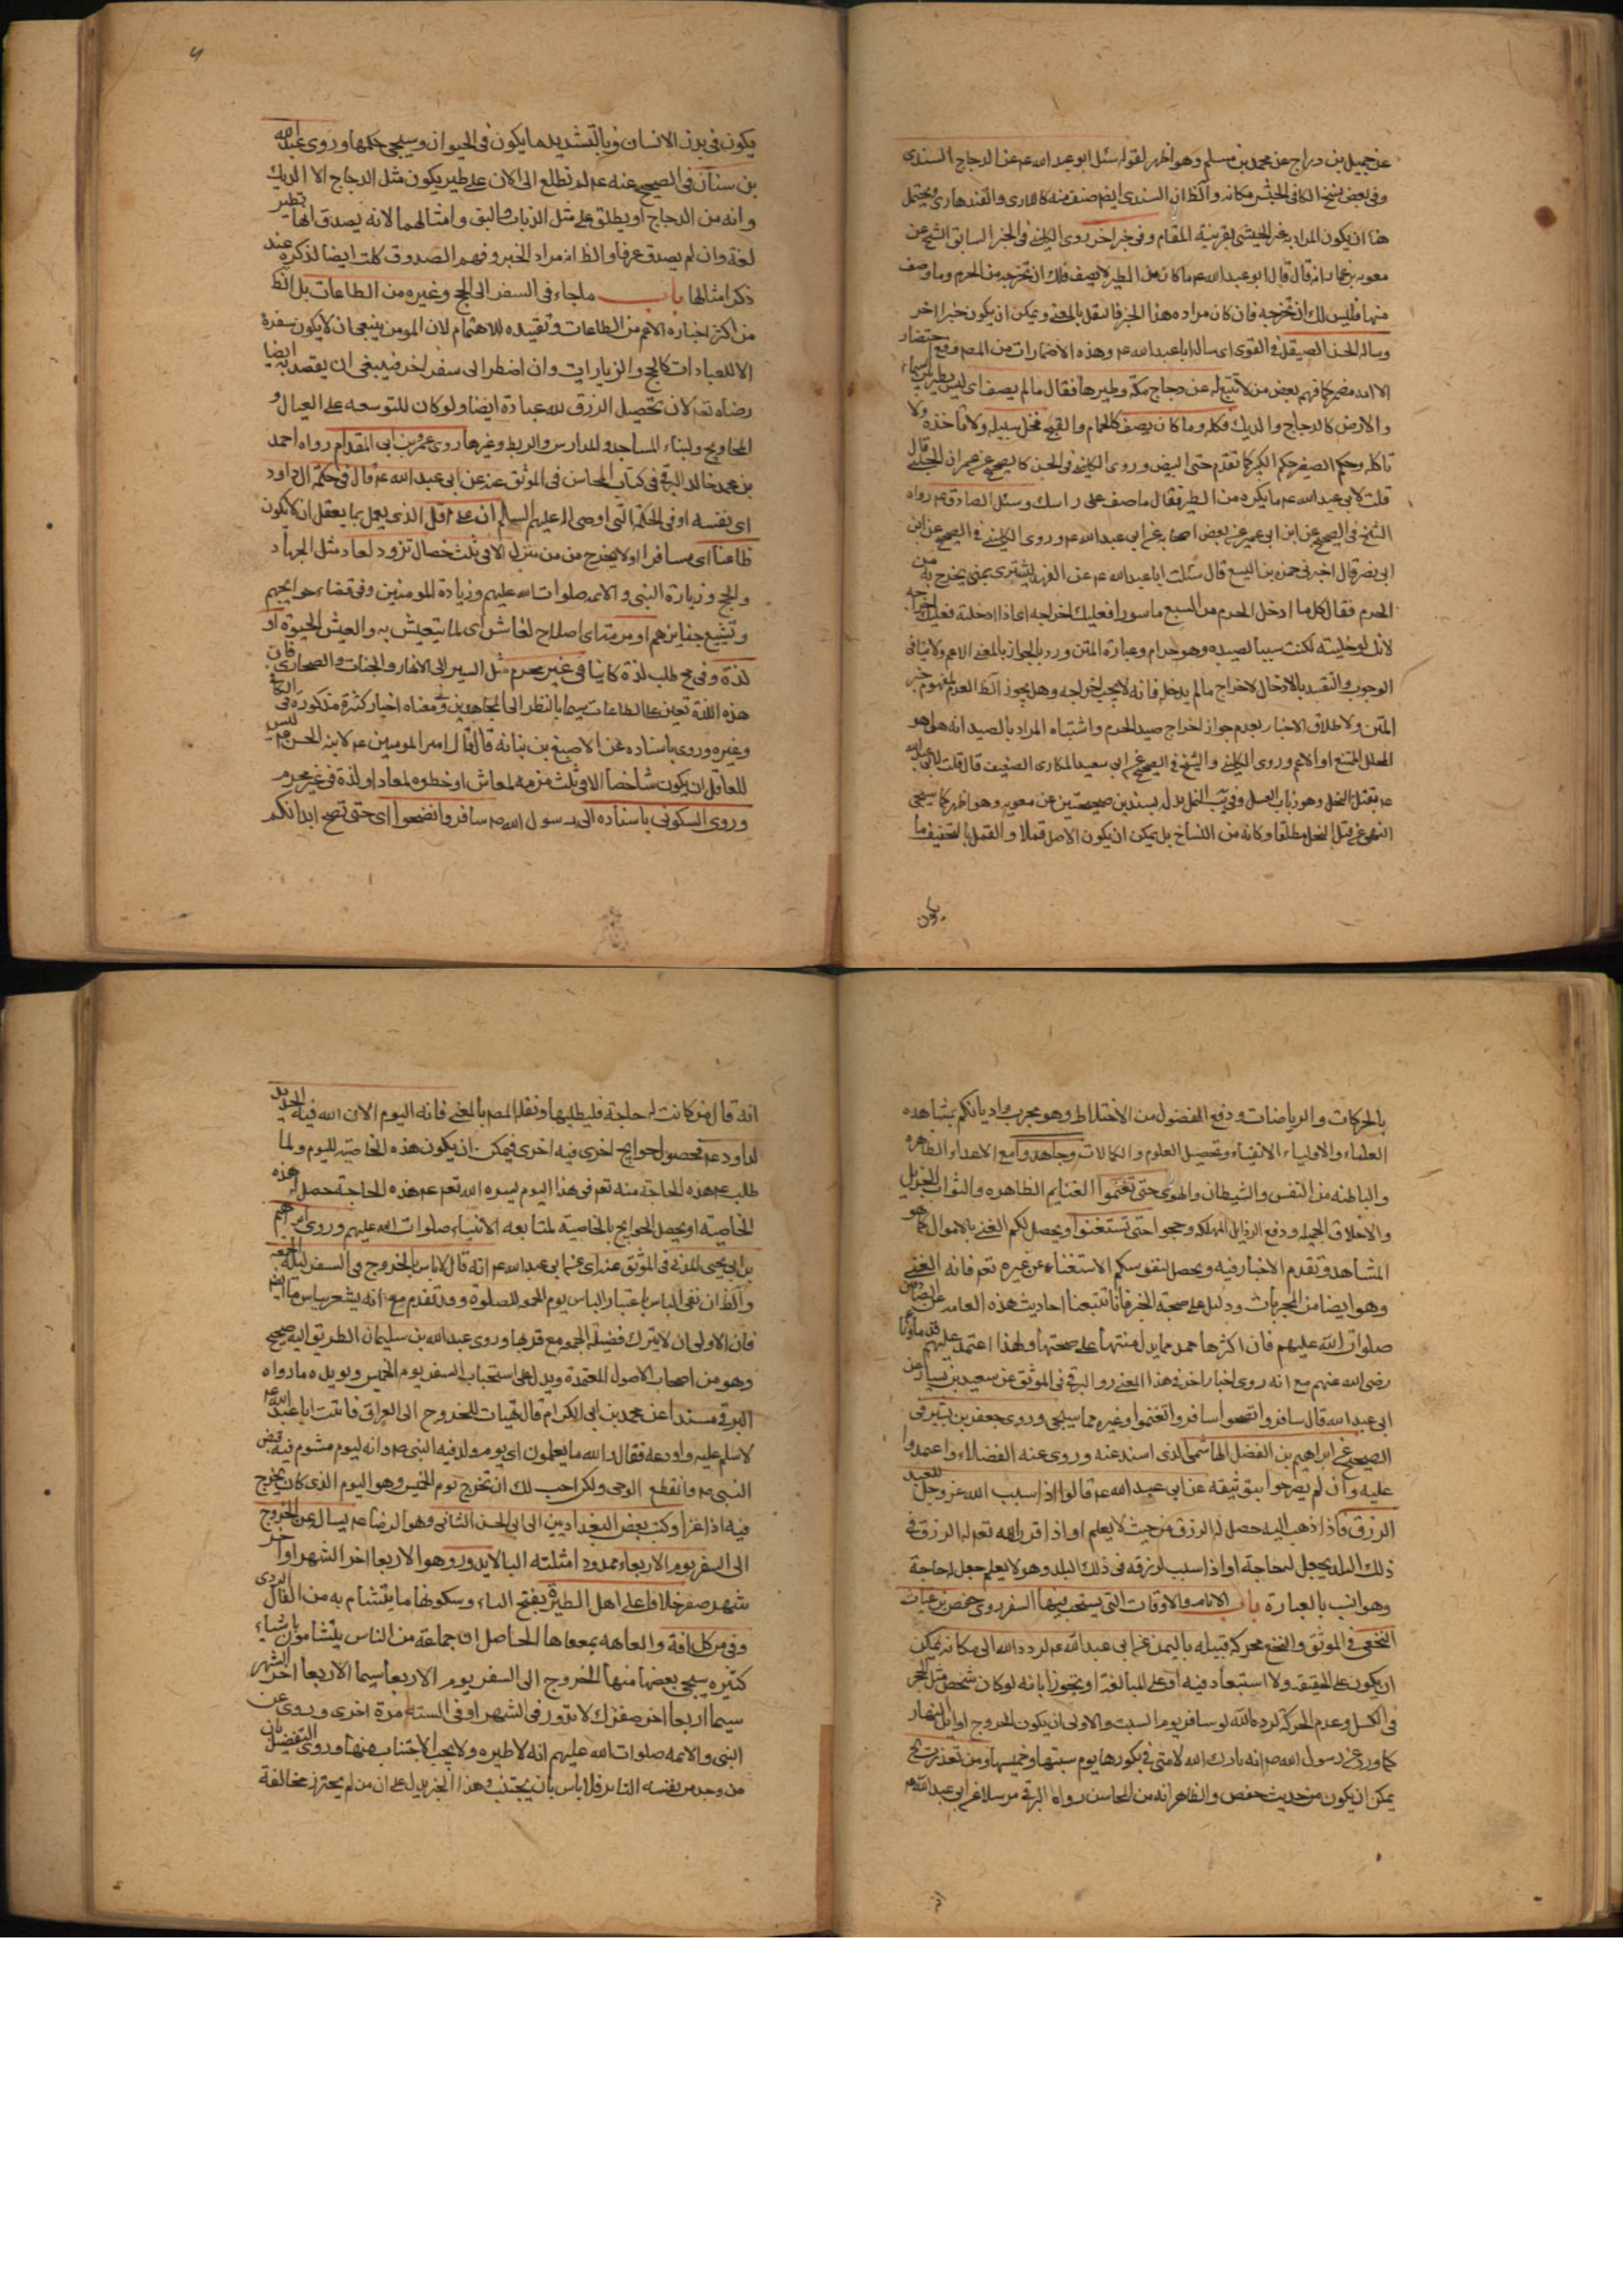 عن جميل بن دراج عن محمد بن مسلم وهو اظهر لقوله سئل ابو عبد الله عم عن الدجاج السندى
وفى بعض نسخ الكافى الحبشى مكانه والظ ان السندى ايضم صنف منه كاللارى والقندهارى ويحتمل
هنا ان يكون المراد به غير الحبشى بقرينة المقام وفى خبر اخر روى الكلينى فى الخبر السابق الشيخ عن
معوية بن عمار انه قال قال ابو عبد الله عم ما كان من الطير لا يصف فلك ان تخرجه من الحرم وما وصف
منها فليس لك ان تخرجه فان كان مراده هذا الخبر فالنقل بالمعنى ويمكن ان يكون خبرا اخر
وساله الحسن الصيقل فى القوى اى سال ابا عبد الله عم وهذه الاضمارات من المصم وقع اختصار
الا انه مضمر كما فهم بعض من لا تتبع له عن دجاج مكة وطيرها فقال ما لم يصف اى ليس يطير بين السماء
والارض كالدجاج والديك فكله وما كان يصف كالحمام والقبج فخل سبيله ولا تاخذه ولا
تاكله وحكم الصغير حكم الكبير كما تقدم حتى البيض وروى الكلينى فى الحسن كالصحيح عن عمران الحلبى قال
قلت لابى عبد الله عم ما يكره من الطير فقال ما صف على راسك وسئل الصادق عم رواه
الشيخ فى الصحيح عن ابن ابى عمير عن بعض اصحابه عن ابى عبد الله عم وروى الكلينى فى الصحيح عن ابن
ابى نصر قال اخبرنى حمزه بن اليسع قال سئلت ابا عبد الله عم عن الفهد يشترى بمنى يخرج به من
الحرم فقال كل ما ادخل الحرم من السبع ماسورا فعليك اخراجه اى اذا ادخلته فعليك اخراجه
لانك لو خليته لكنت سببا لصيده وهو حرام وعبارة المتن ورد بالجواز بالمعنى الاعم ولا ينافى
الوجوب والتقييد بالادخال لاخراج ما لم يدخل فانه لا يجب اخراجه وهل يجوز الظ العدم لمفهوم خبر
المتن ولاطلاق الاخبار بعدم جواز اخراج صيد الحرم واشتباه المراد بالصيد انه هل هو
المحلل الممتنع او الاعم وروى الكلينى والشيخ فى الصحيح عن ابى سعيد المكارى الضعيف قال قلت لابى عبد الله
عم تقتل النحل وهو ذباب العسل وفى يب النمل بدله بسندين صحيحتين عن معويه وهو اظهر كما سيجى
النهى عن قتل النحل مطلقا وكانه من النساخ بل يمكن ان يكون الاصل قملا والقمل بالتخفيف ما
يكون
يكون فى بدن الانسان وبالتشديد ما يكون فى الحيوان وسيجى حكمها وروى عبد الله
بن سنان فى الصحيح عنه عم لم نطلع الى الان على طير يكون مثل الدجاج الا الديك
وانه من الدجاج او يطلق على مثل الذباب والبق وامثالهما لانه يصدق انها تطير
لغة وان لم يصدق عرفا والظ انه مراد الخبر وفهم الصدوق كلت ايضا لذكره عند
ذكر امثالها باب ما جاء فى السفر الى الحج وغيره من الطاعات بل الظ
من اكثر اخباره الاعم من الطاعات وتقييده للاهتمام لان المومن ينبغى ان لا يكون سفره
الا للعبادات كالحج والزيارات وان اضطر الى سفر اخر فينبغى ان يقصد به ايضا
رضاه تعم لان تحصيل الرزق لله عبادة ايضا ولو كان للتوسعه على العيال و
المحاويج ولبناء المساجد والمدارس والربط وغيرها روى عمرو بن ابى المقدام رواه احمد
بن محمد خالد البرقى فى كتاب المحاسن فى الموثق عنه عن ابى عبد الله عم قال فى حكمة ال داود
اى نفسه او فى الحكمة التى اوصى اله عليهم السلام ان على عاقل الذى يعمل بما يعقل ان لا يكون
ظاعنا اى مسافرا او لا يخرج من من منزله الا فى ثلث خصال تزود لمعاد مثل الجهاد
والحج وزيارة النبى والائمه صلوات الله عليهم وزيادة المومنين وفى قضاء حوايجهم
وتشييع جنايزهم او مرمة اى اصلاح لمعاش اى لما يتعيش به والعيش الحيوة او
لذة وفى مح طلب لذة كما نيا فى غير محرم مثل السير الى الانهار والجنات والصحارى فان
هذه اللذة تعين على الطاعات سيما بالنظر الى المجاهدين وفى معناه اخبار كثيرة مذكورة فى الكافى
وغيره وروى باسناده عن الاصبغ بن نباتة قال قال امير المومنين عم لابنه الحسن عم ليس
للعاقل ان يكون شاخصا الا فى ثلث مرمه لمعاش او خطوه لمعاد او لذة فى غير محرم
وروى السكونى باسناده الى رسول الله ص سافروا تصحوا اى حتى تصح ابدانكم
بالحركات والرياضات ودفع الفضول من الاخلاط وهو مجرب واديانكم بمشاهده
العلماء والاولياء الاتقياء وتحصيل العلوم والكمالات وجاهدوا مع الاعداء الظاهره
والباطنه من النفس والشيطان والهوى حتى تغنموا الغنايم الظاهره والثواب الجزيل
والاخلاق الجميله ودفع الرذايل المهلكه وحجوا حتى تستغنوا ويحصل لكم الغنى بالاموال كما هو
المشاهد وتقدم الاخبار فيه ويحصل لنفوسكم الاستغناء عن غيره تعم فانه الغنى
وهو ايضا من المجربات ودليل على صحة الخبر فانا تتبعنا احاديث هذه العامد عن الصادقين
صلوات الله عليهم فان اكثرها حمد مما يدل متنها على صحتها ولهذا اعتمد عليهم قدماؤنا
رضى الله عنهم مع انه روى اخبار اخر فى هذا المعنى روا البرقى فى الموثق عن سعيد بن يسار عن
ابى عبد الله قال سافروا تصحوا سافروا تغنموا وغيره مما سيجى وروى جعفر بن بشير فى
الصحيح عن ابراهيم بن الفضل الهاشمى الذى اسند عنه وروى عنه الفضلاء واعتمدوا
عليه وان لم يصرحوا بتوثيقه عن ابى عبد الله عم قالوا اذا سبب الله عز وجل للعبد
الرزق فاذا ذهب اليه حصل له الرزق من حيث لا يعلم او اذا قرر الله تعم له الرزق فى
ذلك البلد يجعل له حاجة او اذا سبب له رزقه فى ذلك البلد وهو لا يعلم جعل له حاجة
وهو انسب بالعبارة باب الايام والاوقات التى يستحب فيها السفر روى حفص بن غياث
النخعى فى الموثق والنخع محركه قبيله باليمن عن ابى عبد الله عم لرده الله الى مكانه يمكن
ان يكون على الحقيقه ولا استبعاد فيه او على المبالغة او تجوزا بانه لو كان شخص مثل الحجر
فى الكسل وعدم الحركة لرده الله لو سافر يوم السبت والاولى ان يكون الخروج اوايل النهار
كما ورد عن رسول الله ص انه بارك الله لامتى فى بكورها يوم سبتها وخميسها ومن تعذرت الخ
يمكن ان يكون من حديث حفص والظاهر انه من المحاسن رواه البرقى مرسلا عن ابى عبد الله عم
انه
انه قال من كانت له حاجة فليطلبها ونقل المصم بالمعنى فانه اليوم الان الله فيه الحديد
لداود عم فحصول حوايج اخرى فيه اخرى فيمكن ان يكون هذه الخاصية لليوم ولما
طلب عم هذه الحاجة منه تعم فى هذا اليوم يسره الله تعم عم هذه الحاجة حصل له هذه
الخاصية او يحصل الحوايج بالخاصية لمتابعه الانبياء صلوات الله عليهم وروى ابراهيم
بن ابى يحيى المدنى فى الموثق عنه اى عن ابى عبد الله عم انه قال لا باس بالخروج فى السفر ليلة الجمعه
والظ ان نفى الباس باعتبار الباس يوم الجمعه للصلوة وقد تقدم مع انه يشعر بباس ما ايضم
فان الاولى ان لا يترك فضيلة الجمعه مع قربها وروى عبد الله بن سليمان الطريق اليه صحيح
وهو من اصحاب الاصول المعتمدة ويدل على استحباب السفر يوم الخميس ويويده ما رواه
البرقى مسندا عن محمد بن ابى الكرام قال تهيات للخروج الى العراق فاتيت ابا عبد الله عم
لاسلم عليه واودعه فقال والله ما يعلمون اى يوم ولد فيه النبى ص وانه ليوم مشوم فيه قبض
النبى ص وانقطع الوحى ولكن احب لك ان تخرج يوم الخميس وهو اليوم الذى كان يخرج
فيه اذا غزا وكتب بعض البغداديين الى ابى الحسن الثانى وهو الرضا عم يساله عن الخروج
الى السفر يوم الاربعاء ممدود امثلته البا لا يدور وهو الاربعا اخر الشهر او اخر
شهر صفر خلافا على اهل الطيرة بفتح الياء وسكونها ما يتشام به من الفال الردى
وفى من كل افة والعاهه بمعناها الحاصل ان جماعة من الناس يتشامون باشياء
كثيره سيجى بعضها منها الخروج الى السفر يوم الاربعا سيما الاربعا اخر الشهر
سيما اربعا اخر صفر لانك لا تدور فى الشهر او فى السنة مرة اخرى وروى عن
النبى والائمه صلوات الله عليهم انه لا طيره ولا يجب الاجتناب عنها وروى التفصيل بان
من وجد من نفسه التاثر فلا باس بان يجتنب فى هذا الخبر يدل على ان من لم يحترز مخالفة